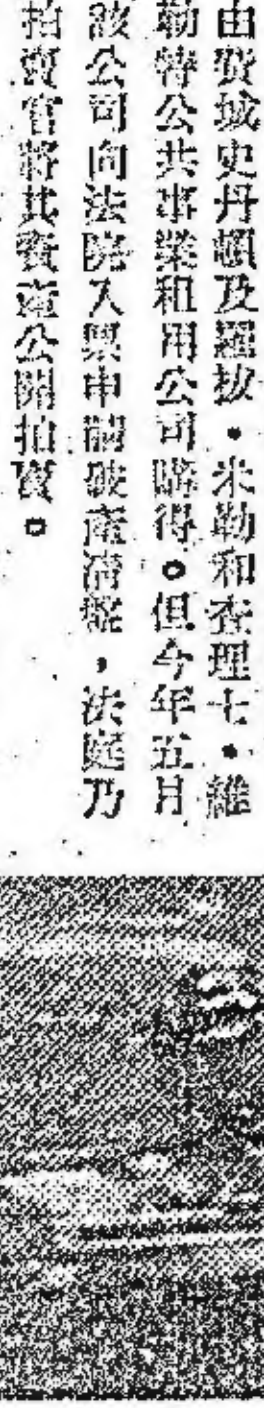 由費城史丹頓及羅拔・米勒和查理士・維
勒特公共事業和用公司購得。但今年五月
該公司向法院入稟申請破產清盤，法庭乃
拍賣官將其資產公開拍賣。